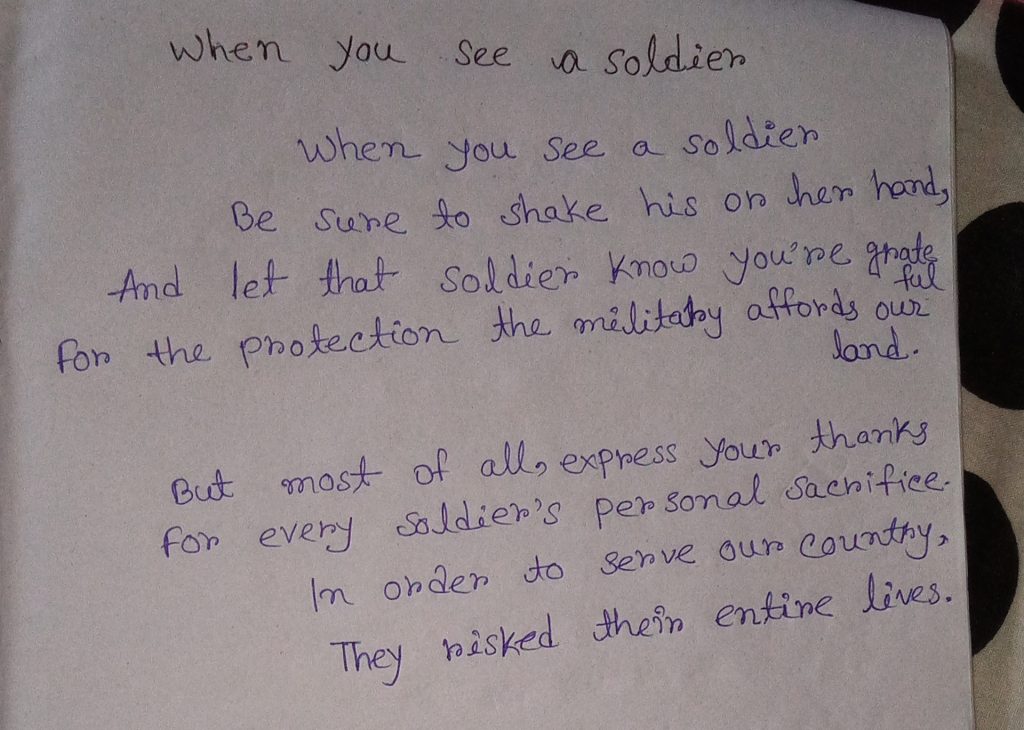 When you see a soldier
When you see a soldier
Be sure to shake his or her hand,
And let that soldier know you're grate
ful
for the protection the military affords our
land.
But most of all, express your thanks
for every soldier's personal sacrifice.
In order to serve our country,
They risked their entire lives.